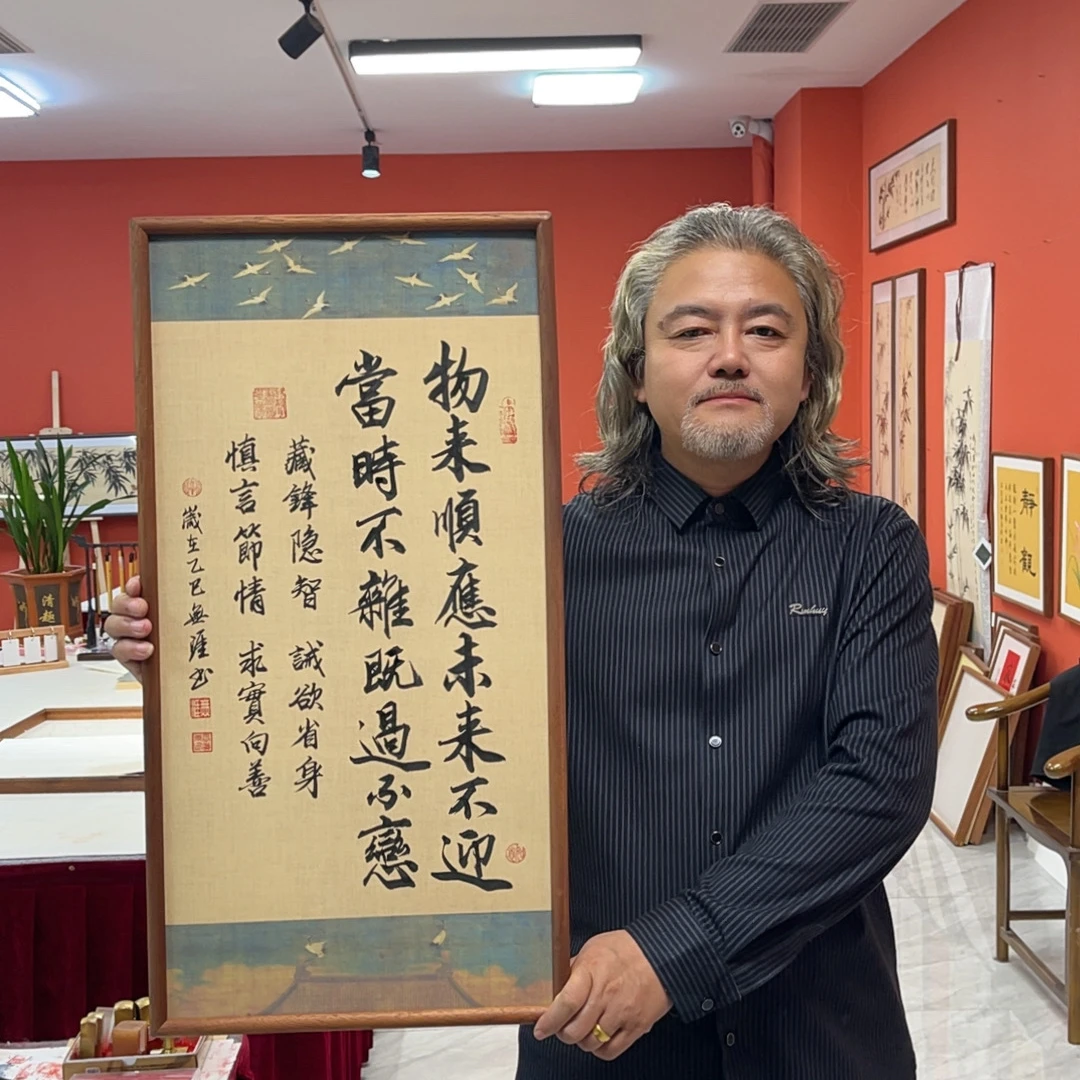 物来順應未来不迎
當時不雜既過不戀
藏鋒隐智 誡欲省身
慎言節情 求實向善
歲在乙巳無涯书
靜觀
清趣